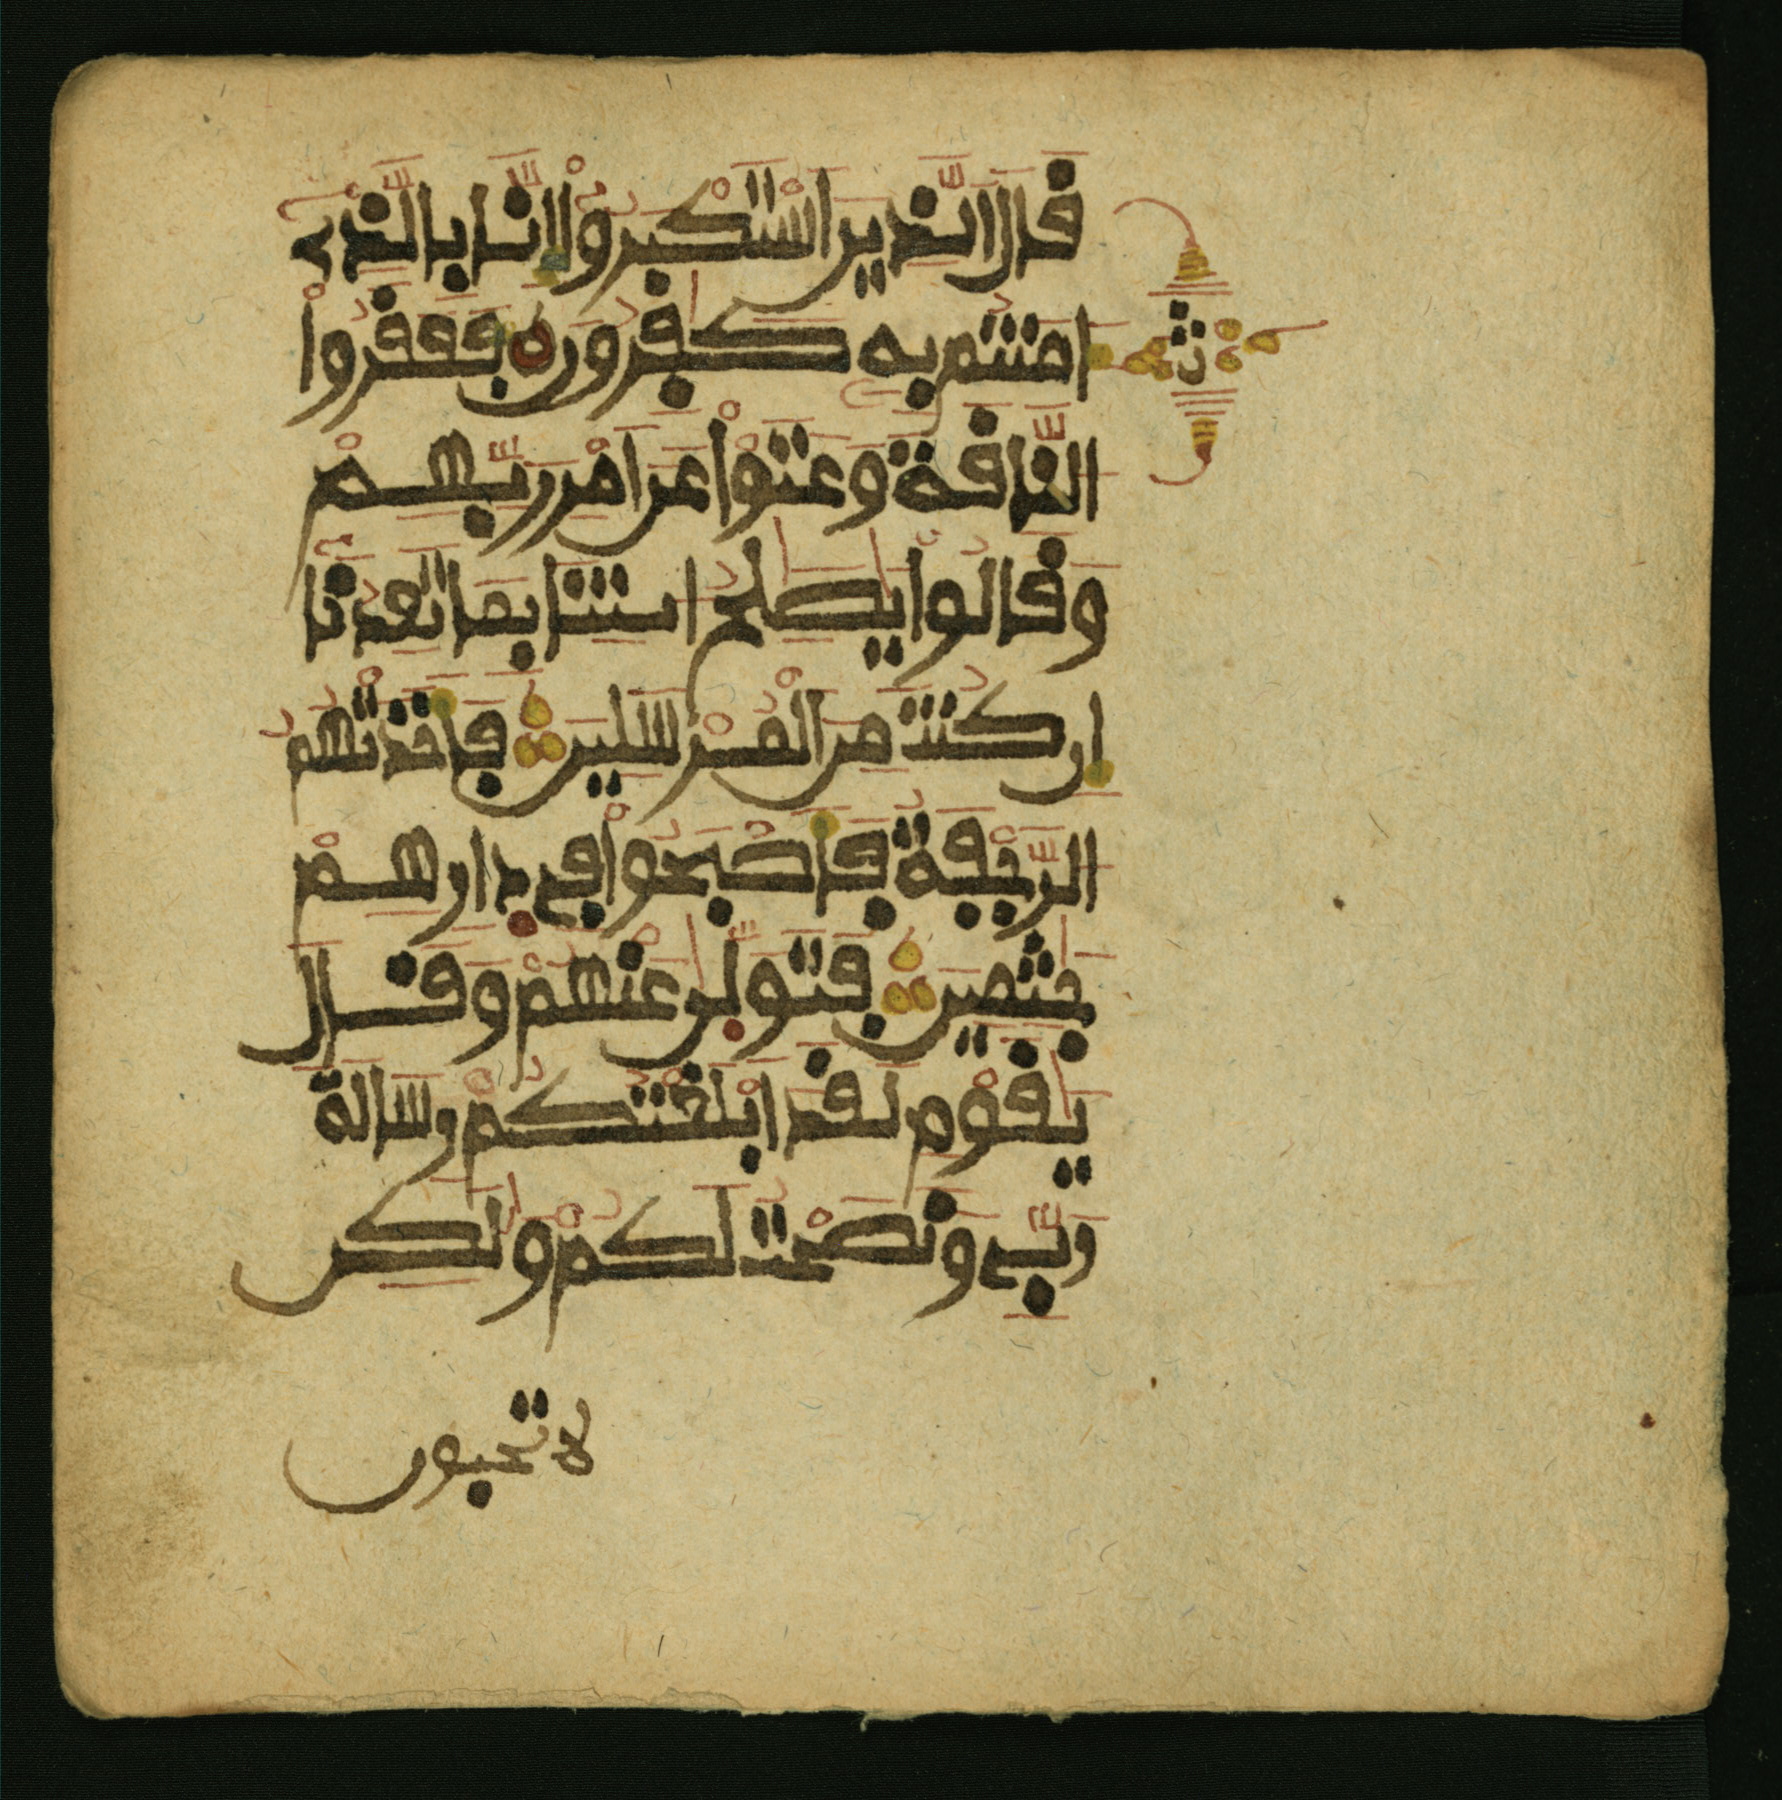 قَالَ اَ۬لذِينَ اَ۪سْتَكْبَرُوٓاْ إِنَّا بِالذِےٓ
ءَامَنتُم بِهِۦ كَٰفِرُونَ فَعَقَرُواْ
اُ۬لنَّاقَةَ وَعَتَوْاْ عَنَ اَمْرِ رَبِّهِمْ
وَقَالُواْ يَٰصَٰلِحُ ا۪يتِنَا بِمَا تَعِدُنَآ
إِن كُنتَ مِنَ اَ۬لْمُرْسَلِينَ فَأَخَذَتْهُمُ
اُ۬لرَّجْفَةُ فَأَصْبَحُواْ فِے دِارِهِمْ
جَٰثِمِينَ فَتَوَلّ۪يٰ عَنْهُمْ وَقَالَ
يَٰقَوْمِ لَقَدَ اَبْلَغْتُكُمْ رِسَالَةَ
رَبِّے وَنَصَحْتُ لَكُمْ وَلَٰكِن
لا تحبون
ثمن